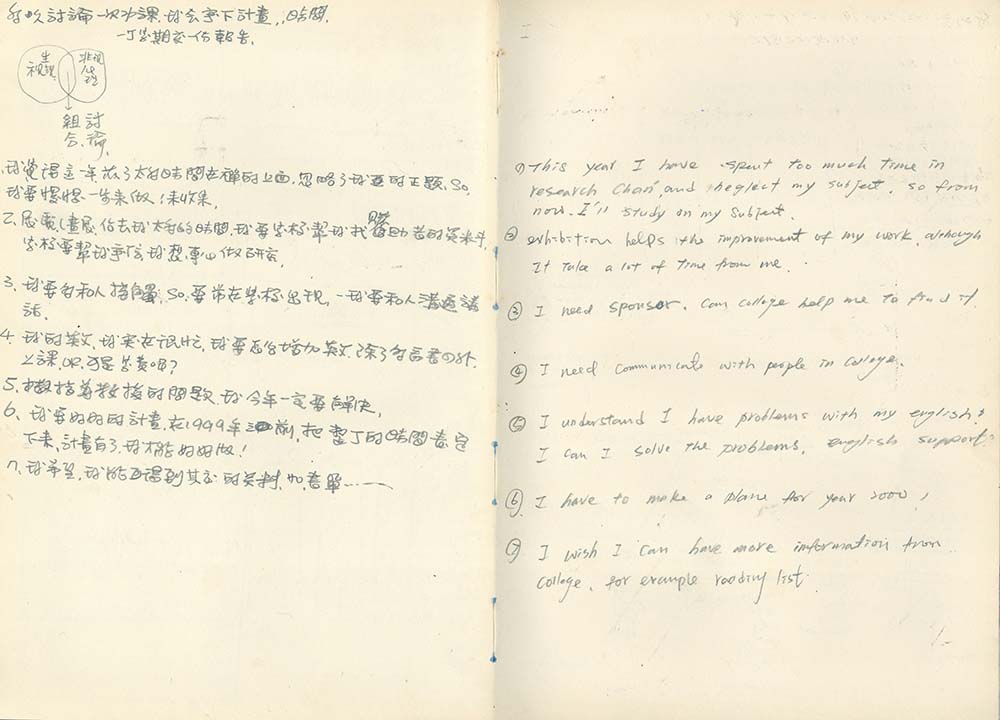 討論一次上課.我会寫下計畫,,時間
一个学期交一份報告.
生
視覺
非視
心理
組討
合.論
1.我覺得這一年花了太多時間在禪的上面.忽略了我要的正題.So,
我要慢慢一步來做!未收集.
2.展覽(畫展)佔去我太多的時間.我要学校幫我找贊助者的資料.
学校要幫我爭信我想專心做研究.
3.我要多和人接觸.So.要常在学校出現.一我要和人溝通講
話.
4.我的英文.我实在很忙.我要怎么增加英文.除了多看書的外
上課.OR.
5.指導教授的問題.我今年一定要解決.
6.我要好好的計畫.在1999年前.把整了的時間
下來.計畫有了.我才能好好做!
7.我希望.我能再得到其它的資料.如書單......
1) This year I have spent too much time in
research 'Chan', and neglect my subject. so from
now. I'll study on my subject.
② exhibition helps the improvement of my work. although
It take a lot of time from me.
③ I need sponsor. Can college help me to find it.
④ I need communicate with people in college.
⑤ I understand I have problems with my english!
I can I solve the problems. english support.
⑥ I have to make a plane for year 2000,
⑦ I wish I can have more information from
college. for example reading list.